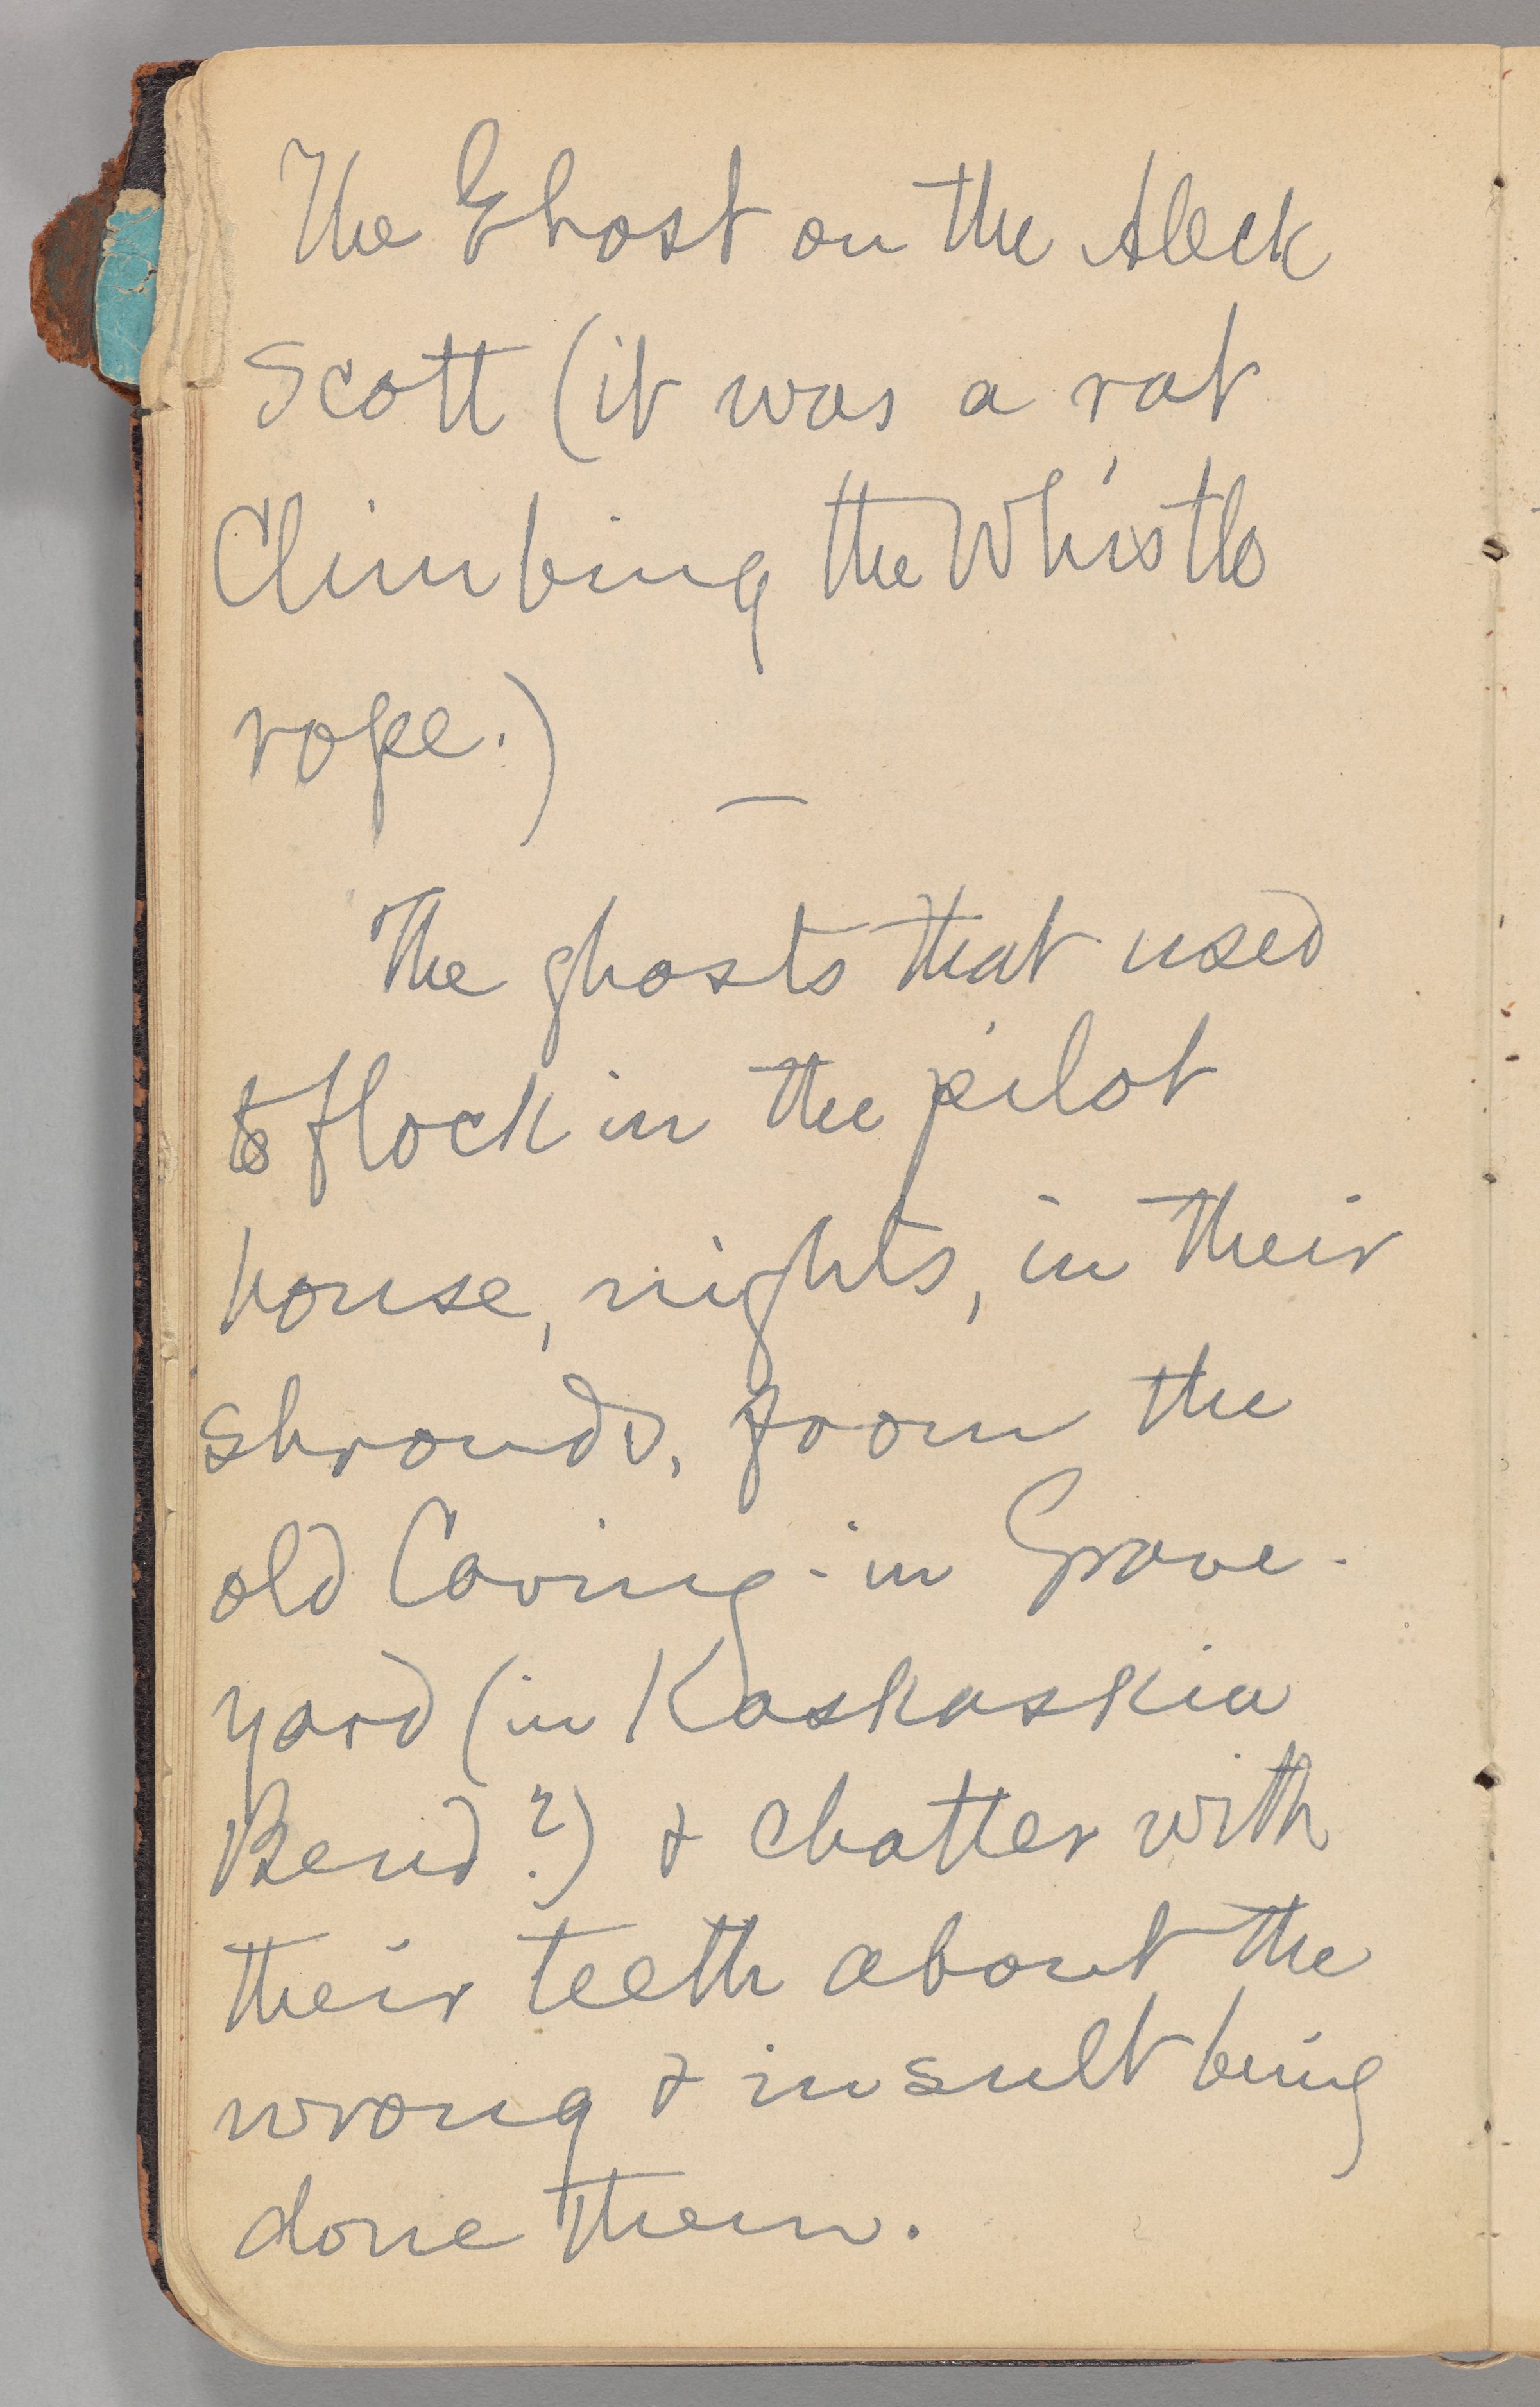 The Ghost on the Aleck
Scott (it was a rat
Climbing the Whistle
rope.)
—
The ghosts that used
to flock in the pilot
house, nights, in their
shrouds, from the
old Caving-in Grave-
yard (in Kaskaskia
Bend?) & chatter with
their teeth about the
wrong & insult being
done them.